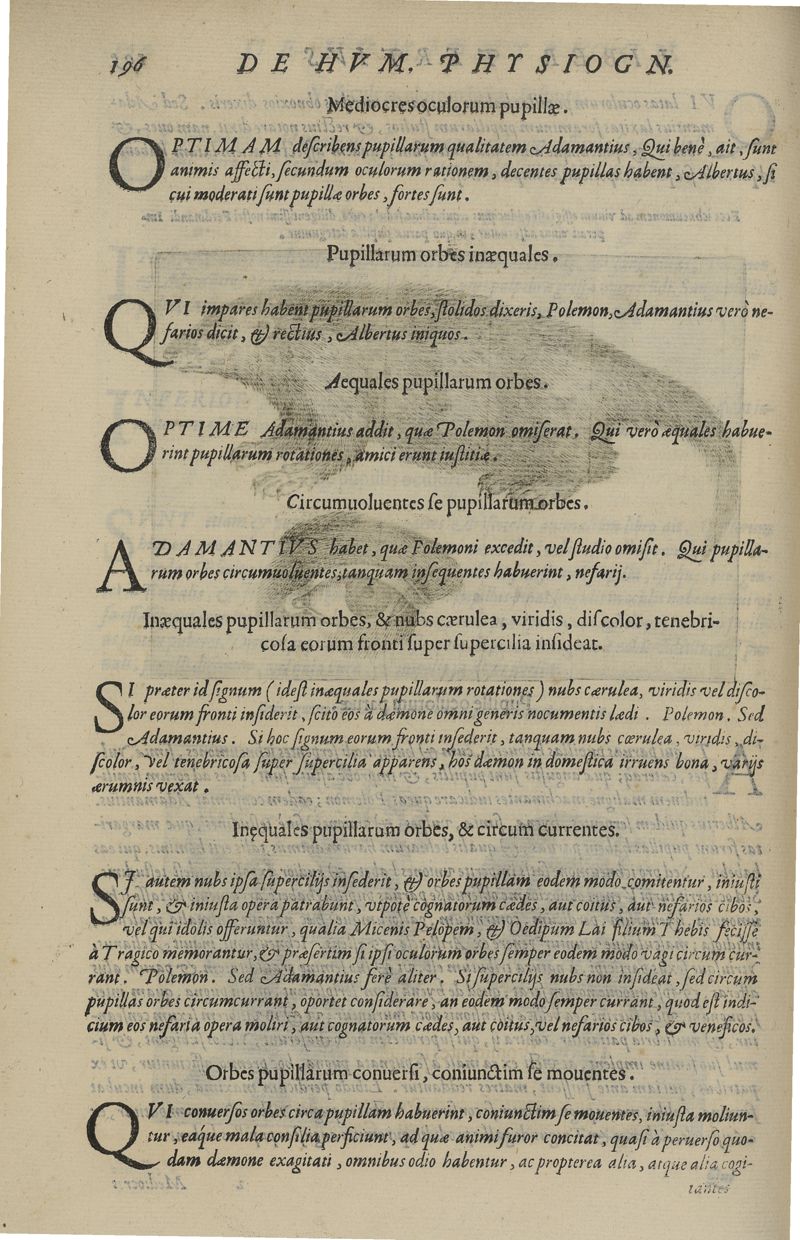 196 DE HVM. PHYSIOGN.
Mediocres oculorum pupillæ.
OPTIMAM deſcribens pupillarum qualitatem Adamantius, Qui benè, ait, ſunt
animis affecti, ſecundum oculorum rationem, decentes pupillas habent, Albertus, ſi
cui moderati ſunt pupillæ orbes, fortes ſunt.
Pupillarum orbes inæquales.
QVI impares habent pupillarum orbes, ſtolidos dixeris, Polemon, Adamantius verò ne-
farios dicit, & rectius, Albertus iniquos.
Aequales pupillarum orbes.
OPTIME Adamantius addit, quæ Polemon omiſerat. Qui verò æquales habue-
rint pupillarum rotationes, amici erunt iuſtitiæ.
Circumuoluentes ſe pupillarum orbes.
ADAMANTIVS habet, quæ Polemoni excedit, vel ſtudio omiſit. Qui pupilla-
rum orbes circumuoluentes, tanquam inſequentes habuerint, nefarij.
Inæquales pupillarum orbes, & nubs cærulea, viridis, diſcolor, tenebri-
coſa eorum fronti ſuper ſupercilia inſideat.
SI præter id ſignum (ideſt inæquales pupillarum rotationes) nubs cærulea, viridis vel diſco-
lor eorum fronti inſiderit, ſcito eos à dæmone omni generis nocumentis lædi. Polemon. Sed
Adamantius. Si hoc ſignum eorum fronti inſederit, tanquam nubs cærulea, viridis, di-
ſcolor, vel tenebricoſa ſuper ſupercilia apparens, hos dæmon in domeſtica irruens bona, varijs
ærumnis vexat.
Inęquales pupillarum orbes, & circum currentes.
SI autem nubs ipſa ſupercilijs inſederit, & orbes pupillam eodem modo comitentur, iniuſti
ſunt, & iniuſta opera patrabunt, vipote cognatorum cædes, aut coitus, aut nefarios cibos,
vel qui idolis offeruntur, qualia Micenis Pelopem, & Oedipum Lai filium Thebis feciſſe
à Tragico memorantur, & præſertim ſi ipſi oculorum orbes ſemper eodem modo vagi circum cur-
rant. Polemon. Sed Adamantius ferè aliter. Si ſupercilijs nubs non inſideat, ſed circum
pupillas orbes circumcurrant, oportet conſiderare, an eodem modo ſemper currant, quod eſt indi-
cium eos nefaria opera moliri, aut cognatorum cædes, aut coitus, vel nefarios cibos, & veneficos.
Orbes pupillarum conuerſi, coniunctim ſe mouentes.
QVI conuerſos orbes circa pupillam habuerint, coniunctim ſe mouentes, iniuſta moliun-
tur, eaque mala conſilia perficiunt, ad quæ animi furor concitat, quaſi à peruerſo quo-
dam dæmone exagitati, omnibus odio habentur, ac propterea alia, atque alia cogi-
tantes